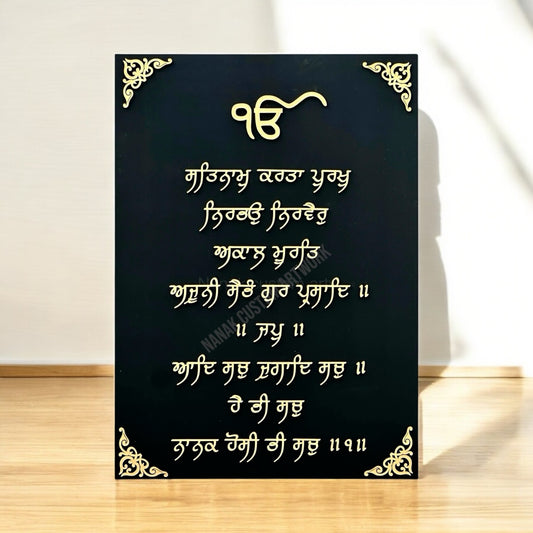 ੴ
ਸਤਿਨਾਮੁ ਕਰਤਾ ਪੁਰਖੁ
ਨਿਰਭਉ ਨਿਰਵੈਰੁ
ਅਕਾਲ ਮੂਰਤਿ
ਅਜੂਨੀ ਸੈਭੰ ਗੁਰ ਪ੍ਰਸਾਦਿ ॥
॥ ਜਪੁ ॥
ਆਦਿ ਸਚੁ ਜੁਗਾਦਿ ਸਚੁ ॥
ਹੈ ਭੀ ਸਚੁ
ਨਾਨਕ ਹੋਸੀ ਭੀ ਸਚੁ ॥੧॥
NANAK CUSTOM ARTWORK